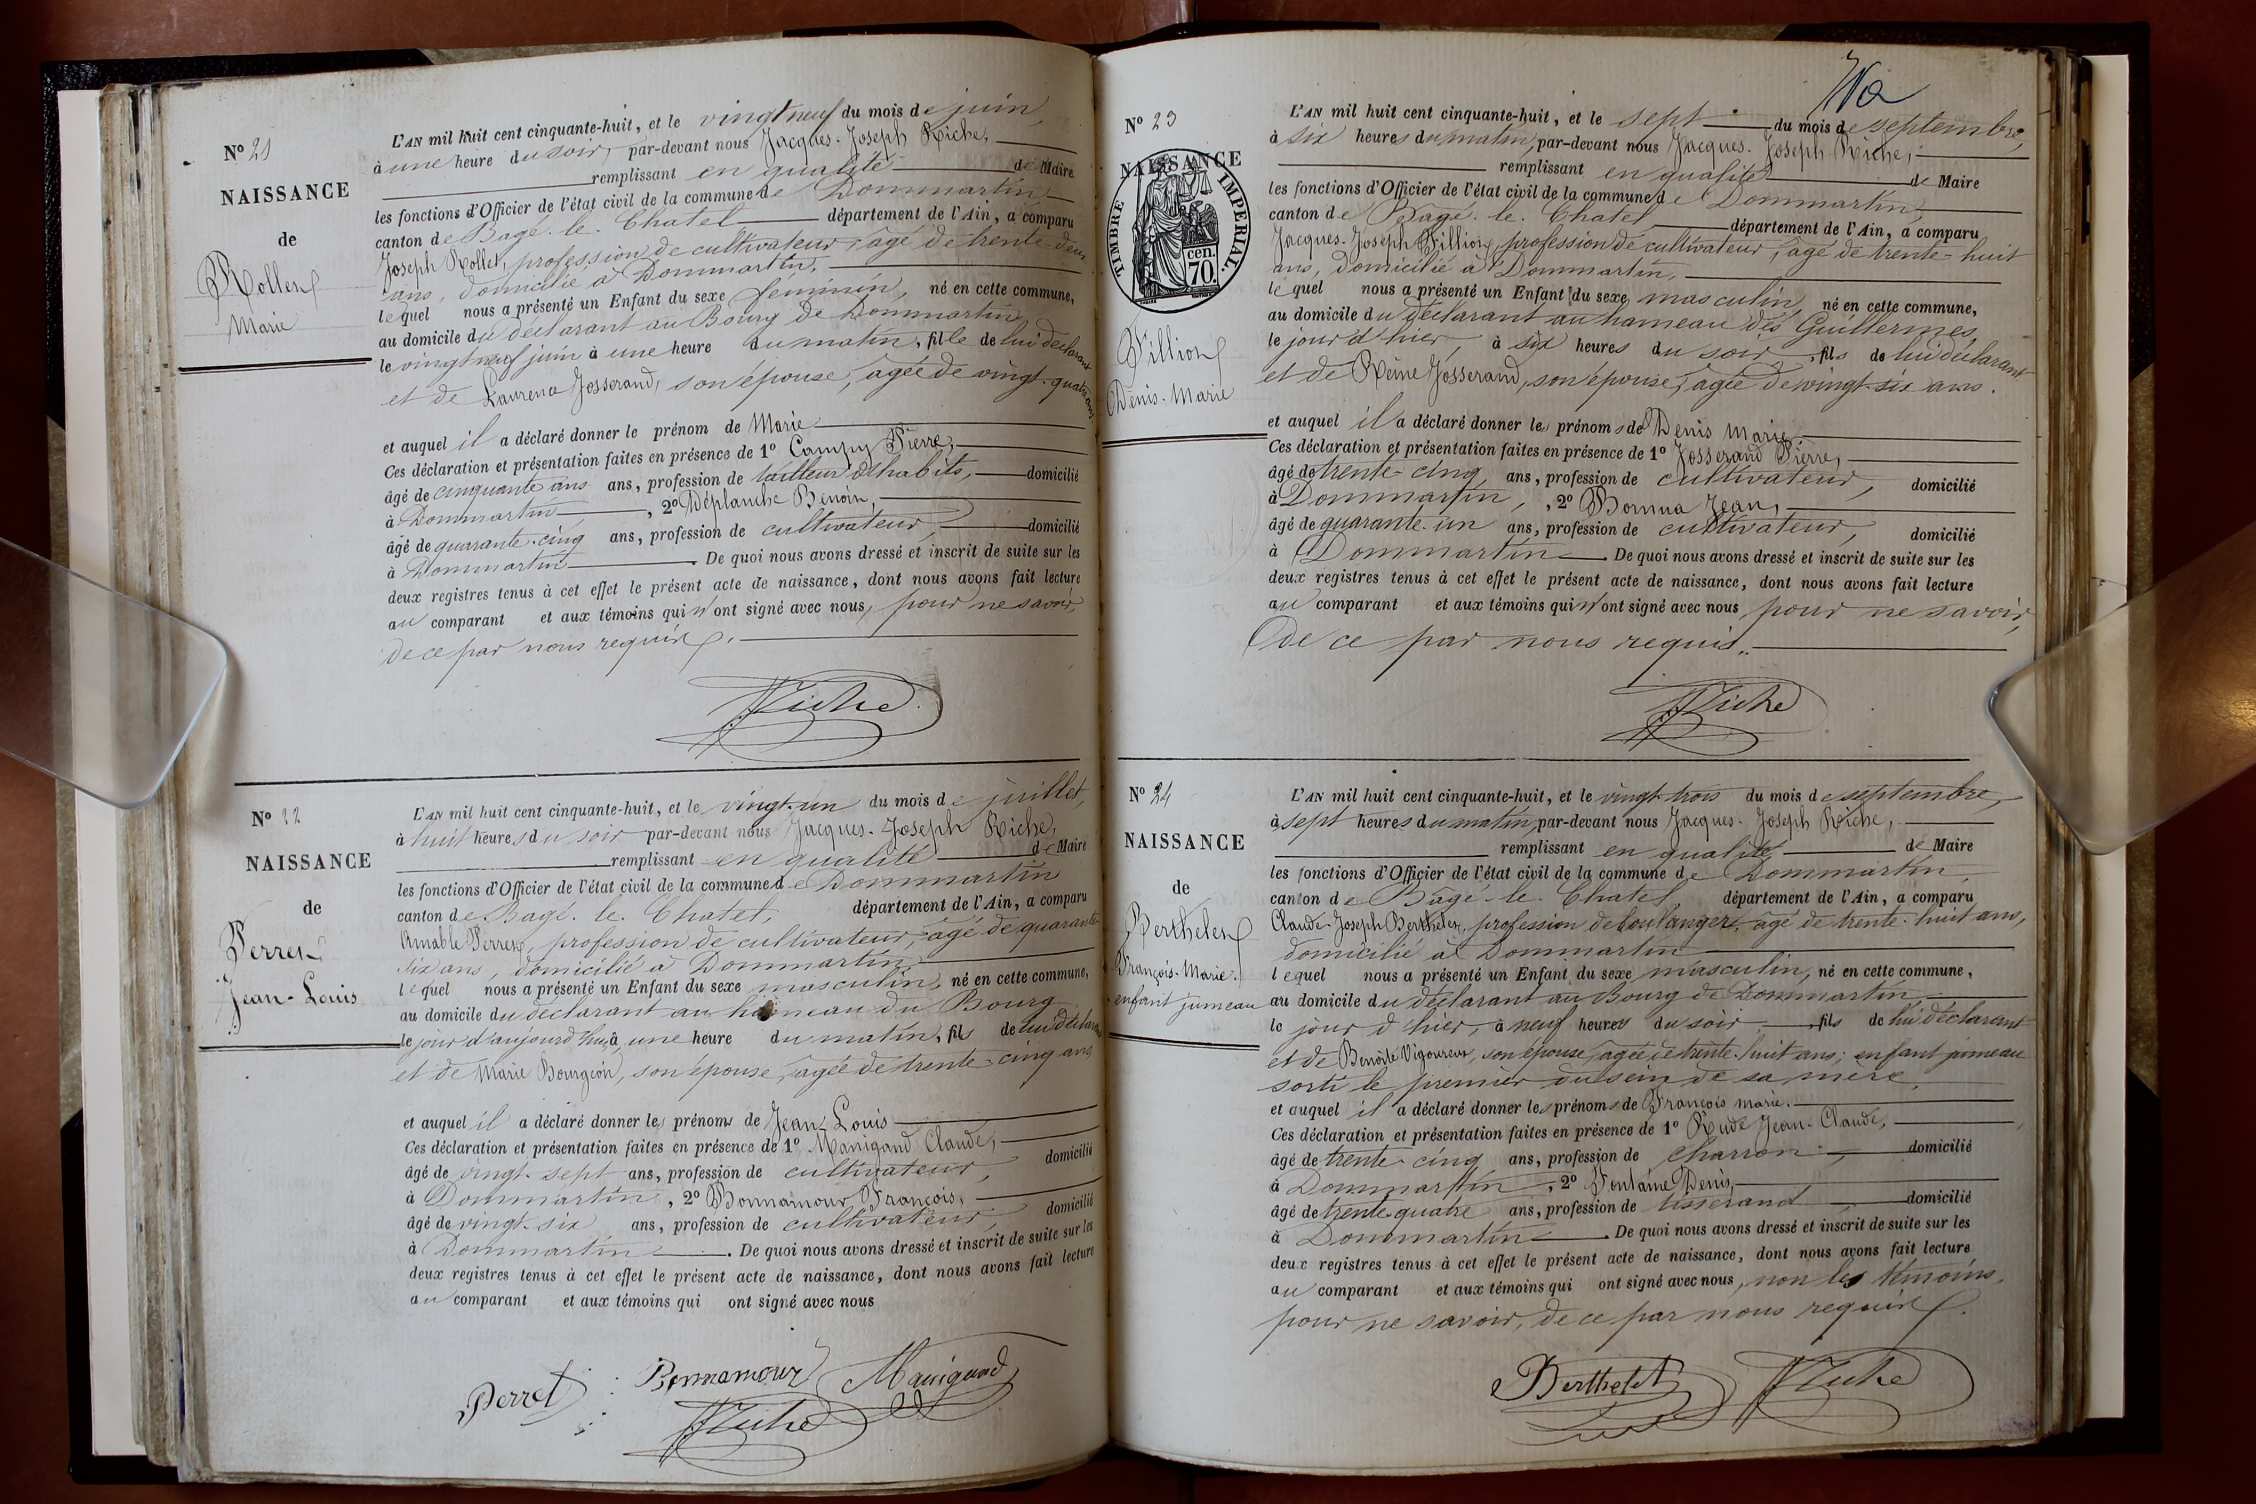 N° 21
NAISSANCE
de
Rollet
Marie
L'AN mil huit cent cinquante-huit, et le vingt neuf du mois de juin,
à une heure du soir, par-devant nous Jacques-Joseph Riche,
remplissant en qualité de Maire
les fonctions d'Officier de l'état civil de la commune de Dommartin
canton de Bagé-le-Chatel département de l'Ain, a comparu
Joseph Rollet, profession de cultivateur, âgé de trente-deux
ans, domicilié à Dommartin,
lequel nous a présenté un Enfant du sexe féminin, né en cette commune,
au domicile du déclarant au Bourg de Dommartin
le vingt neuf juin à une heure du matin, fille de lui déclarant
et de Laurena Josserand, son épouse, âgée de vingt-quatre ans
et auquel il a déclaré donner le prénom de Marie
Ces déclaration et présentation faites en présence de 1° Campy Pierre,
âgé de cinquante ans ans, profession de tailleur d'habits, domicilié
à Dommartin, 2° Déplanche Benoin,
âgé de quarante-cinq ans, profession de cultivateur, domicilié
à Dommartin. De quoi nous avons dressé et inscrit de suite sur les
deux registres tenus à cet effet le présent acte de naissance, dont nous avons fait lecture
au comparant et aux témoins qui n'ont signé avec nous, pour ne savoir,
de ce par nous requis.
Riche
N° 22
NAISSANCE
de
Perret
Jean-Louis
L'AN mil huit cent cinquante-huit, et le vingt-un du mois de juillet,
à huit heures du soir par-devant nous Jacques-Joseph Riche,
remplissant en qualité de Maire
les fonctions d'Officier de l'état civil de la commune de Dommartin
canton de Bagé-le-Chatel, département de l'Ain, a comparu
Amable Perret, profession de cultivateur, âgé de quarante
six ans, domicilié à Dommartin,
lequel nous a présenté un Enfant du sexe masculin, né en cette commune,
au domicile du déclarant au hameau du Bourg
le jour d'aujourd'hui, à une heure du matin, fils de lui déclarant
et de Marie Bourgeon, son épouse, âgée de trente-cinq ans
et auquel il a déclaré donner les prénoms de Jean-Louis
Ces déclaration et présentation faites en présence de 1° Manigand Claude,
âgé de vingt-sept ans, profession de cultivateur, domicilié
à Dommartin, 2° Bonnamour François,
âgé de vingt-six ans, profession de cultivateur, domicilié
à Dommartin. De quoi nous avons dressé et inscrit de suite sur les
deux registres tenus à cet effet le présent acte de naissance, dont nous avons fait lecture
au comparant et aux témoins qui ont signé avec nous
Perret Bonnamour Manigand
Riche
N° 23
NAISSANCE
TIMBRE IMPERIAL.
70 cen.
Fillion
Denis-Marie
L'AN mil huit cent cinquante-huit, et le sept du mois de septembre,
à six heures du matin, par-devant nous Jacques-Joseph Riche,
remplissant en qualité de Maire
les fonctions d'Officier de l'état civil de la commune de Dommartin,
canton de Bagé-le-Chatel département de l'Ain, a comparu
Jacques-Joseph Fillion, profession de cultivateur, âgé de trente-huit
ans, domicilié à Dommartin,
lequel nous a présenté un Enfant du sexe masculin, né en cette commune,
au domicile du déclarant au hameau des Guillermes
le jour d'hier, à six heures du soir, fils de lui déclarant
et de Reine Josserand, son épouse, âgée de vingt-six ans.
et auquel il a déclaré donner les prénoms de Denis Marie
Ces déclaration et présentation faites en présence de 1° Josserand Pierre,
âgé de trente-cinq ans, profession de cultivateur, domicilié
à Dommartin, 2° Bonnna Jean,
âgé de quarante-un ans, profession de cultivateur, domicilié
à Dommartin. De quoi nous avons dressé et inscrit de suite sur les
deux registres tenus à cet effet le présent acte de naissance, dont nous avons fait lecture
au comparant et aux témoins qui n'ont signé avec nous, pour ne savoir,
de ce par nous requis.
Riche
N° 24
NAISSANCE
de
Berthelet
François-Marie.
enfant jumeau
L'AN mil huit cent cinquante-huit, et le vingt-trois du mois de septembre,
à sept heures du matin, par-devant nous Jacques-Joseph Riche,
remplissant en qualité de Maire
les fonctions d'Officier de l'état civil de la commune de Dommartin,
canton de Bâgé-le-Chatel, département de l'Ain, a comparu
Claude-Joseph Berthelet, profession de boulanger, âgé de trente-huit ans,
domicilié à Dommartin
lequel nous a présenté un Enfant du sexe masculin, né en cette commune,
au domicile du déclarant au Bourg de Dommartin
le jour d'hier, à neuf heures du soir, fils de lui déclarant
et de Benoîte Vigoureux, son épouse, âgée de trente-huit ans; enfant jumeau
sorti le premier du sein de sa mère,
et auquel il a déclaré donner les prénoms de François Marie.
Ces déclaration et présentation faites en présence de 1° Rude Jean-Claude,
âgé de trente-cinq ans, profession de charron, domicilié
à Dommartin, 2° Fontaine Denis,
âgé de trente-quatre ans, profession de tisserand domicilié
à Dommartin. De quoi nous avons dressé et inscrit de suite sur les
deux registres tenus à cet effet le présent acte de naissance, dont nous avons fait lecture
au comparant et aux témoins qui ont signé avec nous, non les témoins,
pour ne savoir, de ce par nous requis.
Berthelet Riche